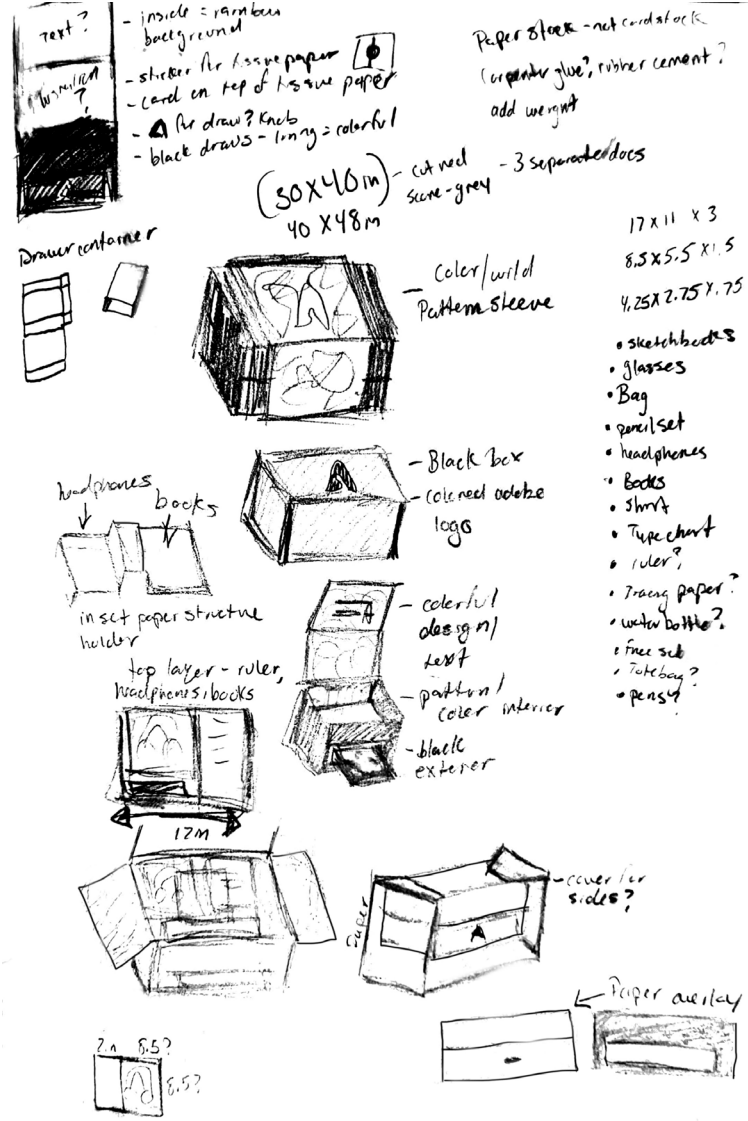 Text?
- inside = rainbow
background
- sticker for tissue paper
- card on top of tissue paper
- A for draw? Knob
- black draws - lining = colorful
Paper stock - not cardstock
Carpenter glue?, rubber cement?
add weight
(30X40in)
40 X 48in
- cut red
score - grey
- 3 separate docs
17 x 11 x 3
8.5 x 5.5 x 1.5
4.25 X 2.75 X .75
Drawer container
- Color/wild
Pattern sleeve
• sketchbooks
• glasses
• Bag
• pencil set
• headphones
• Books
• Shirt
• Type chart
• ruler?
• Tracing paper?
• water bottle?
• Totebag?
• pens?
- Black box
- colored adobe
logo
headphones
books
inset paper structure
holder
- colorful
design/
text
- pattern/
color interior
- black
exterior
top layer - ruler,
headphones, books
12in
Paper
- cover for
sides?
Paper overlay
2in 8.5?
8.5?